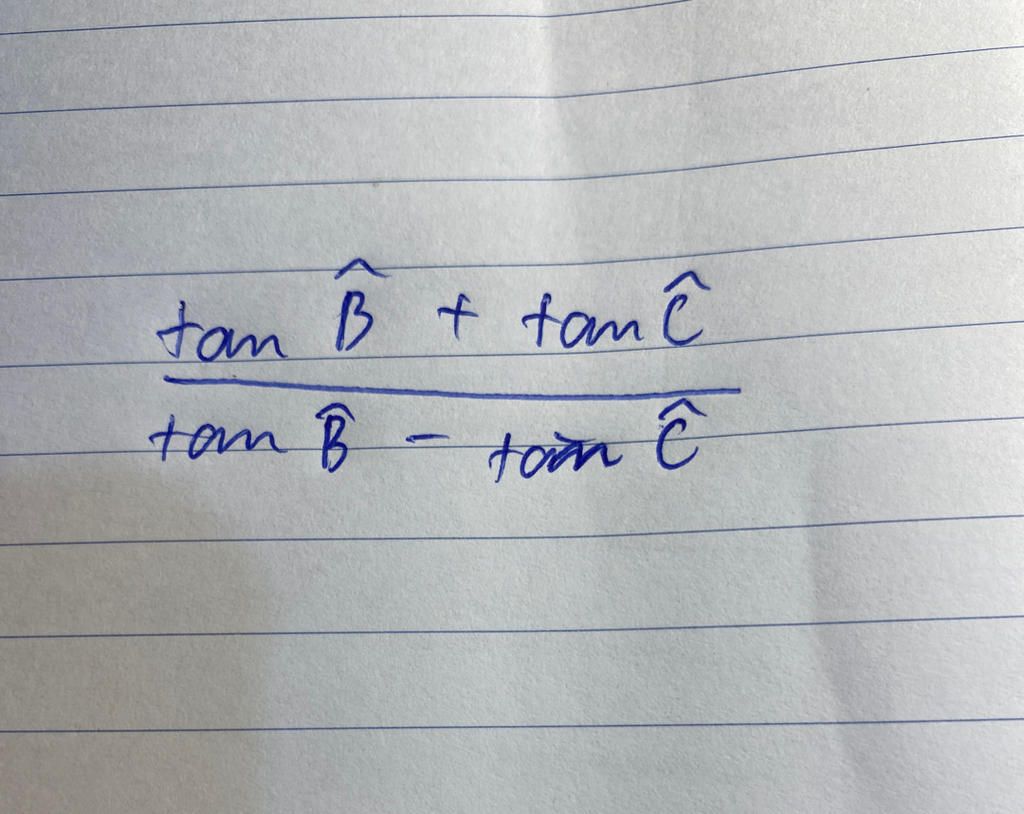 tan B̂ + tan Ĉ
tan B̂ - tan Ĉ